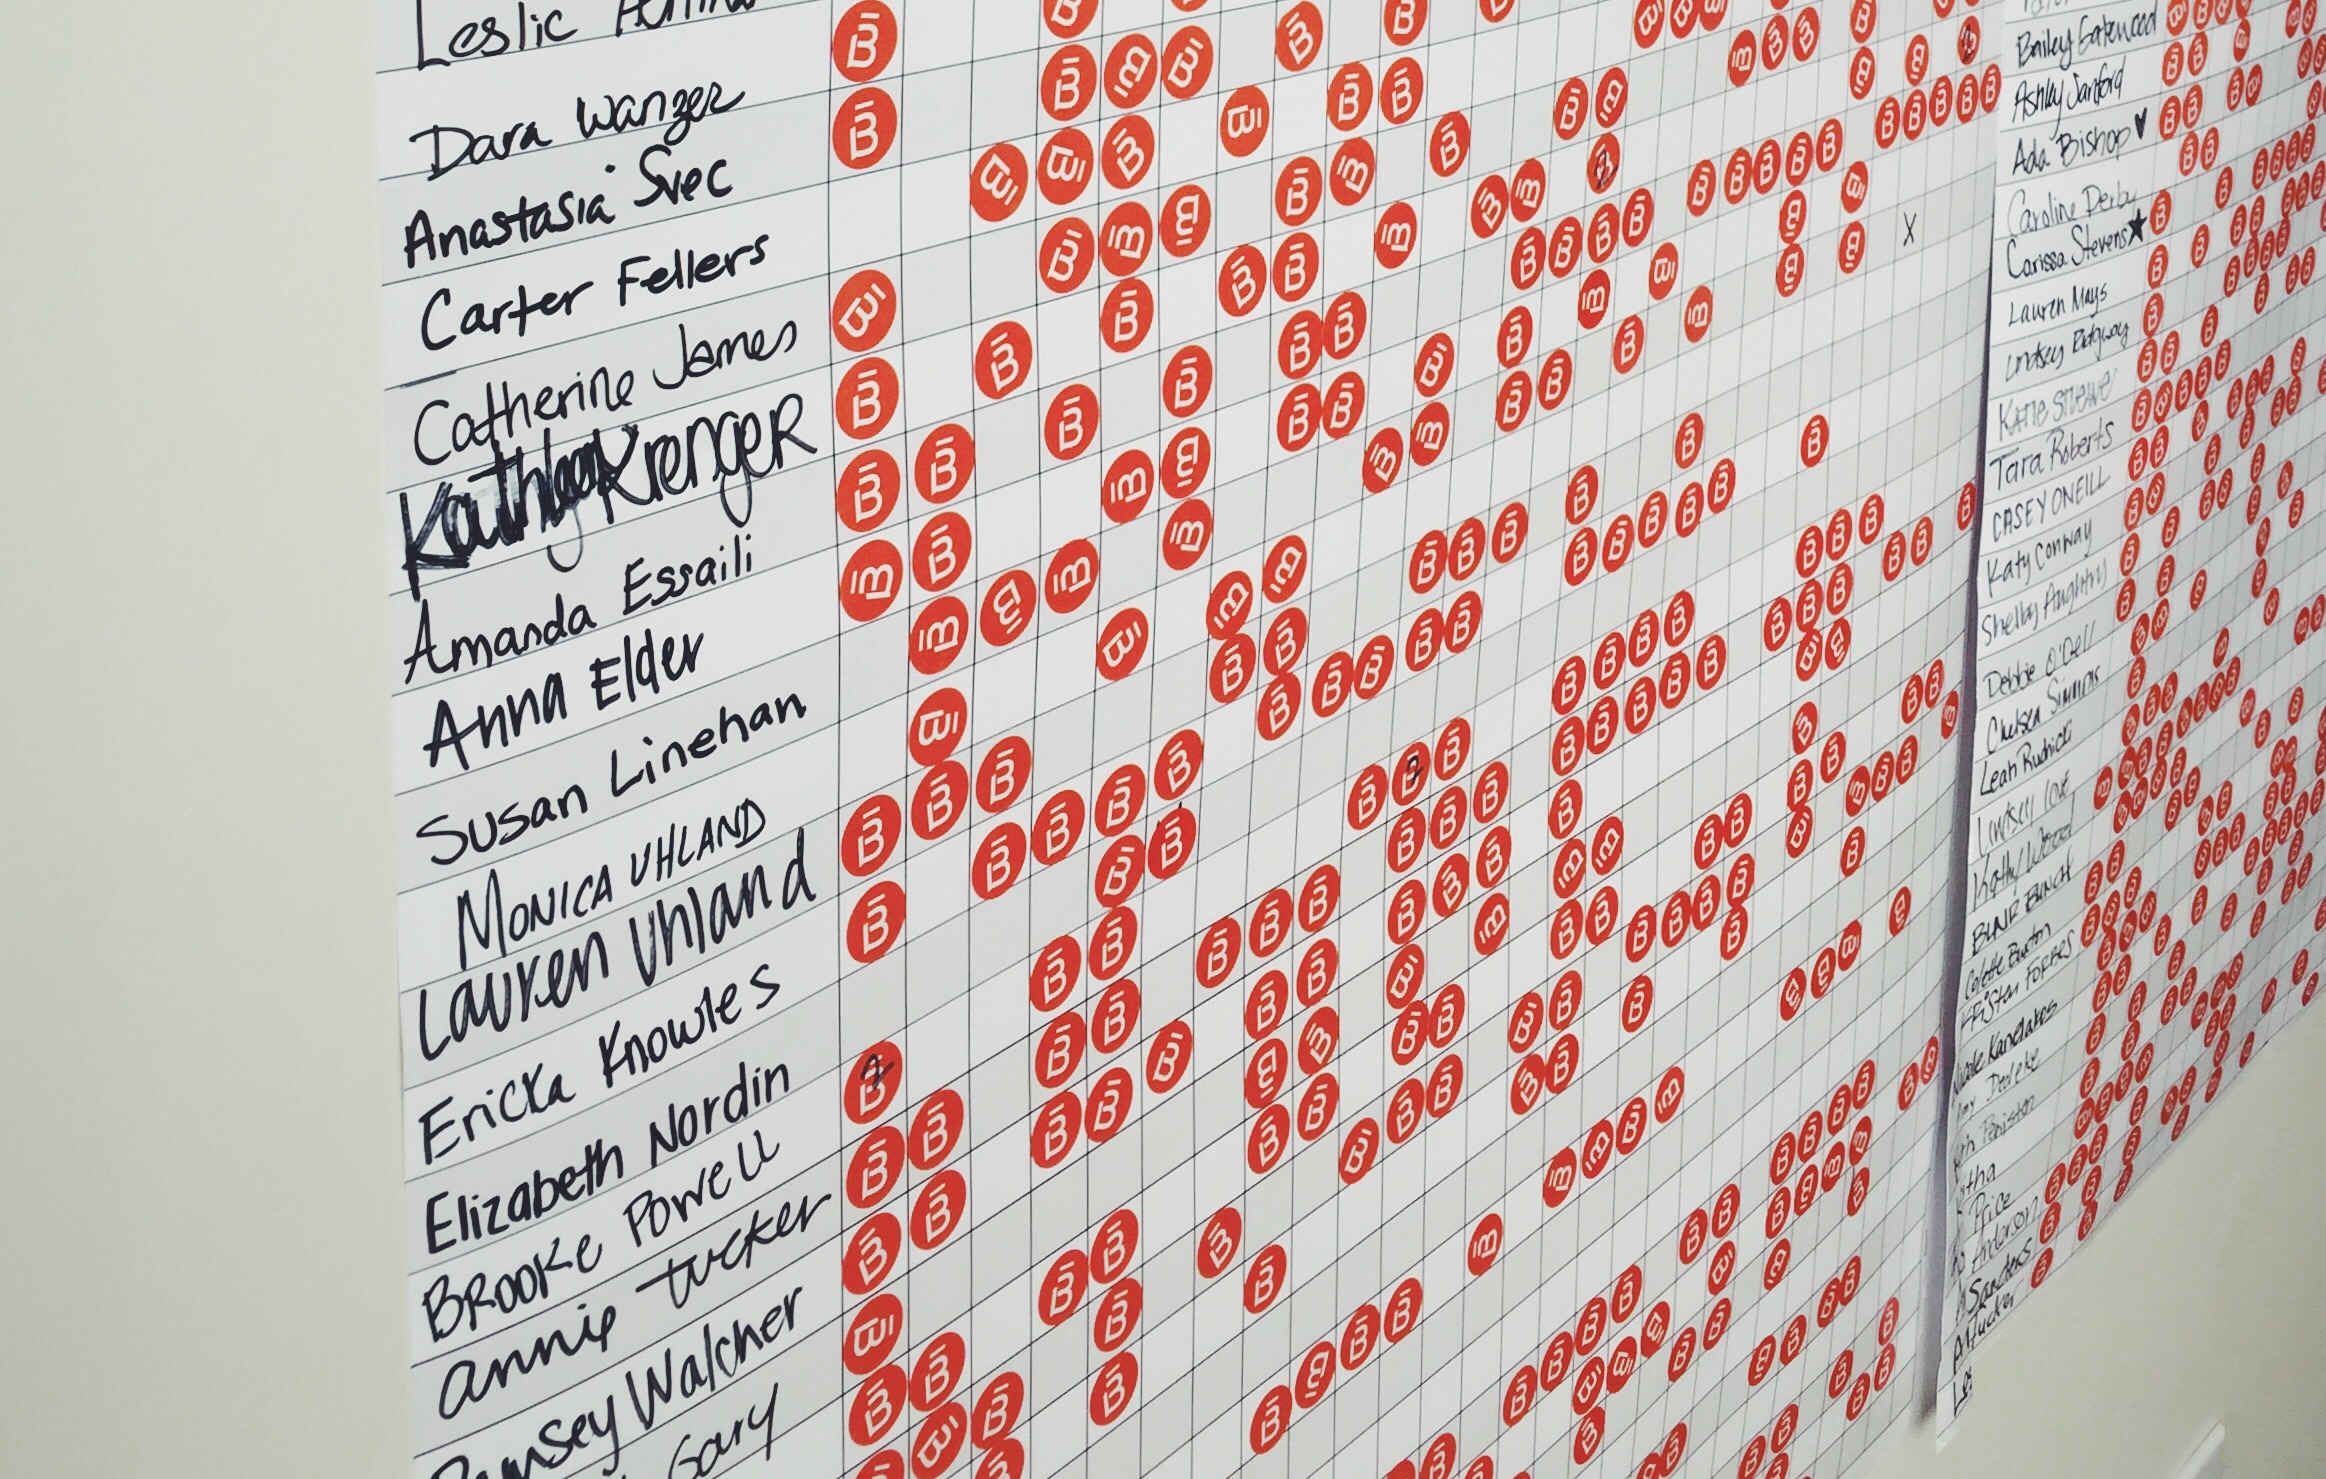 Leslie
Dara Wanzer
Anastasia Svec
Carter Fellers
Catherine James
Kathleen Krenger
Amanda Essaili
Anna Elder
Susan Linehan
MONICA UHLAND
LAUREN Uhland
Ericka Knowles
Elizabeth Nordin
BROOKE POWELL
annie tucker
Ramsey Walcher
Gary
Bailey Gatewood
Ashley Sanford
Ada Bishop
Caroline Derby
Carissa Stevens
Lauren Mays
Lindsey Ridgway
KATIE STUEWE
Tara Roberts
CASEY ONEILL
Katy Conway
Shelby Aughtry
Debbie O'Dell
Chelsea Simms
Leah Rudnick
Lindsey Love
Kathy Wood
BLAIR BUNCH
Colette Burton
Kristen FORBES
Nicole Kanelakos
Price
Anderson
Sanders
A Tucker